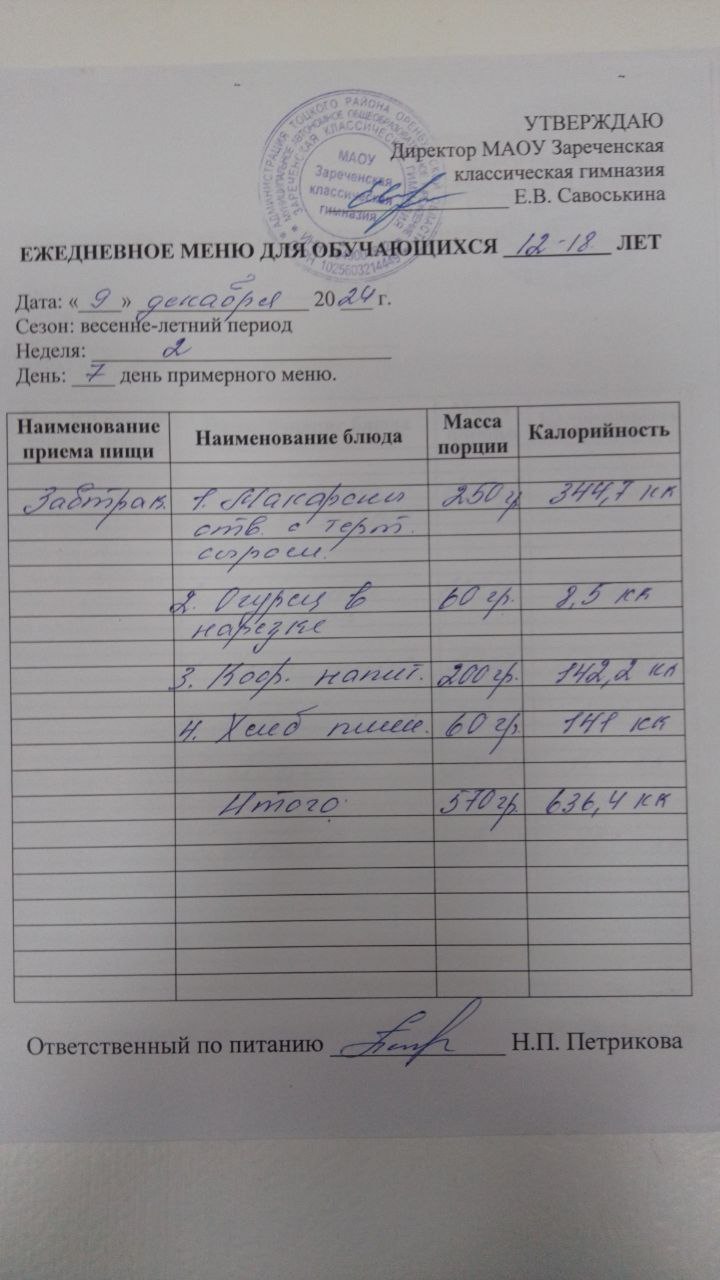 УТВЕРЖДАЮ
Директор МАОУ Зареченская
классическая гимназия
Е.В. Савоськина
МАОУ
Зареченская
классическая
гимназия
ЕЖЕДНЕВНОЕ МЕНЮ ДЛЯ ОБУЧАЮЩИХСЯ 12-18 ЛЕТ
Дата: «9» декабря 2024 г.
Сезон: весенне-летний период
Неделя: 2
День: 7 день примерного меню.
Наименование приема пищи Наименование блюда Масса порции Калорийность
Завтрак. 1. Макароны 250 гр 344,7 кк
отв. с терт.
сыром.
2. Огурец в 60 гр. 8,5 кк
нарезке
3. Коф. напит. 200 гр. 142,2 кк
4. Хлеб пшен. 60 гр. 141 кк
Итого: 570 гр. 636,4 кк
Ответственный по питанию Н.П. Петрикова